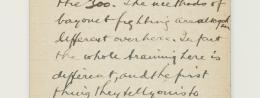 the 300. The methods of
bayonet fighting are all much
different over here. In fact
the whole training here is
different, and the first
thing they tell you is to